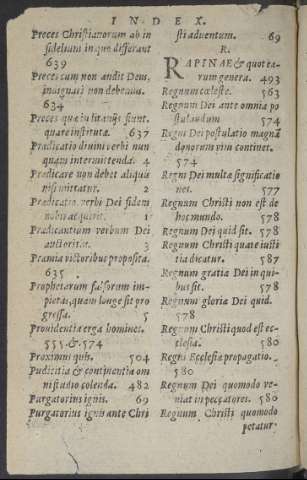 INDEX.
Preces Christianorum ab in
fidelium in quo differant
639
Preces cum non audit Deus,
indignari non debemus.
634
Preces quæ in litanijs sunt.
quare institutæ. 637
Prædicatio diuini verbi nun
quam intermittenda. 4
Prædicare non debet aliquis
nisi mittatur. 2
Prædicatio verbi Dei fidem
nobis acquirit. 1
Prædicantium verbum Dei
auctoritas. 3
Præmia victoribus proposita.
635
Prophetarum falsorum im-
pietas, quam longe sit pro
gressa. 5
Prouidentia erga homines.
555 & 574
Proximus quis. 504
Pudicitia & continentia om
ni studio colenda. 482
Purgatorius ignis. 69
Purgatorius ignis ante Chri
sti aduentum. 69
R.
RAPINAE & quot ea-
rum genera. 493
Regnum cœleste. 563
Regnum Dei ante omnia po
stulandum 574
Regni Dei postulatio magnā
donorum vim continet.
574
Regni Dei multæ significatio
nes. 577
Regnum Christi non est de
hoc mundo. 578
Regnum Dei quid sit. 578
Regnum Christi quare iusti
tia dicatur. 587
Regnum gratiæ Dei in qui-
bus sit. 578
Regnum gloriæ Dei quid.
578
Regnum Christi quod est ec-
clesia. 580
Regni Ecclesiæ propagatio.
580
Regnum Dei quomodo ve-
niat in peccatores. 580
Regnum Christi quomodo
petatur